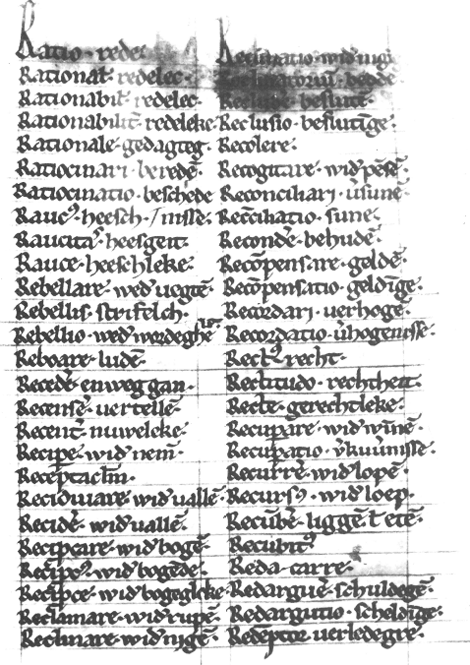 Ratio · rede
Rational' · redelec ·
Rationabil' · redelec ·
Rationabilit' · redeleke ·
Rationale · gedagteg ·
Ratiocinari · beredē ·
Ratiocinatio · beschede
Raucꝰ · heesch · / nisse ·
Raucitaˢ · heesgeit
Rauce · heeschleke ·
Rebellare · wed' uegtē ·
Rebellis · strifelch ·
Rebellio · wed' wordeghe
Reboare · ludē ·
Reced'e · enweg gan ·
Recens'e · uertellē ·
Recent' · nuweleke ·
Recipe · wid' nem̄ ·
Receptacl'm ·
Recidiuare · wid' uallē ·
Recid'e · wid' uallē ·
Recip̄care · wid' bogē ·
Recip̄ꝰ · wid' bogēde ·
Recip̄ce · wid' bogegleke ·
Reclamare · wid' rupē ·
Reclinare · wid' nigē ·
Reclinatio · wid' nigī
Reclinatoriū · bedde
Reclud'e · beslutē ·
Reclusio · beslutīge ·
Recolere ·
Recogitare · wid' pēsē ·
Reconciliari · v'sunē
Recc̄iliatio · sune ·
Recond'e · behudē ·
Recōpensare · geldē ·
Recōpensatio · geldīge ·
Recordari · uerhogē ·
Recordatio · v'hogenisse ·
Rectꝰ · recht ·
Rectitudo · rechtheit ·
Recte · gerechtleke ·
Recup̄are · wid' wīnē ·
Recup̄atio · v'kuu'nisse ·
Recurr'e · wid' lopē ·
Recursꝰ · wid' loep ·
Recūb'e · liggē t' etē ·
Recubitꝰ
Reda · carre ·
Redargu'e · schuldegē ·
Redargutio · scheldīge ·
Redēptor · uerledegre ·